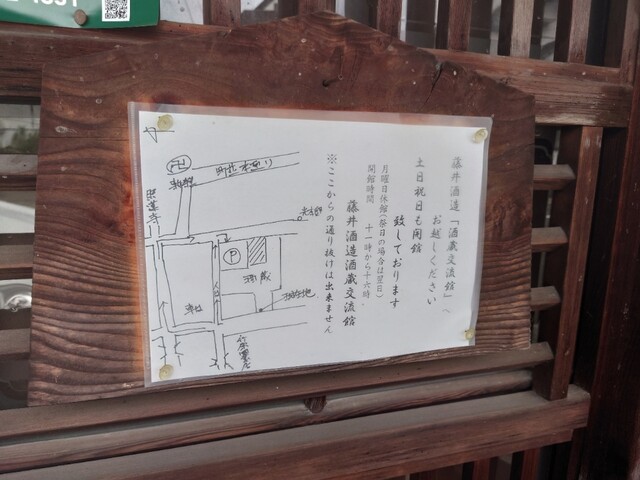 藤井酒造「酒蔵交流館」へ
お越しください
土日祝日も開館
致しております
月曜日休館(祭日の場合は翌日)
開館時間 十一時から十六時
藤井酒造酒蔵交流館
※ここからの通り抜けは出来ません
町並本通り
卍
照蓮寺
P
酒蔵
現在地